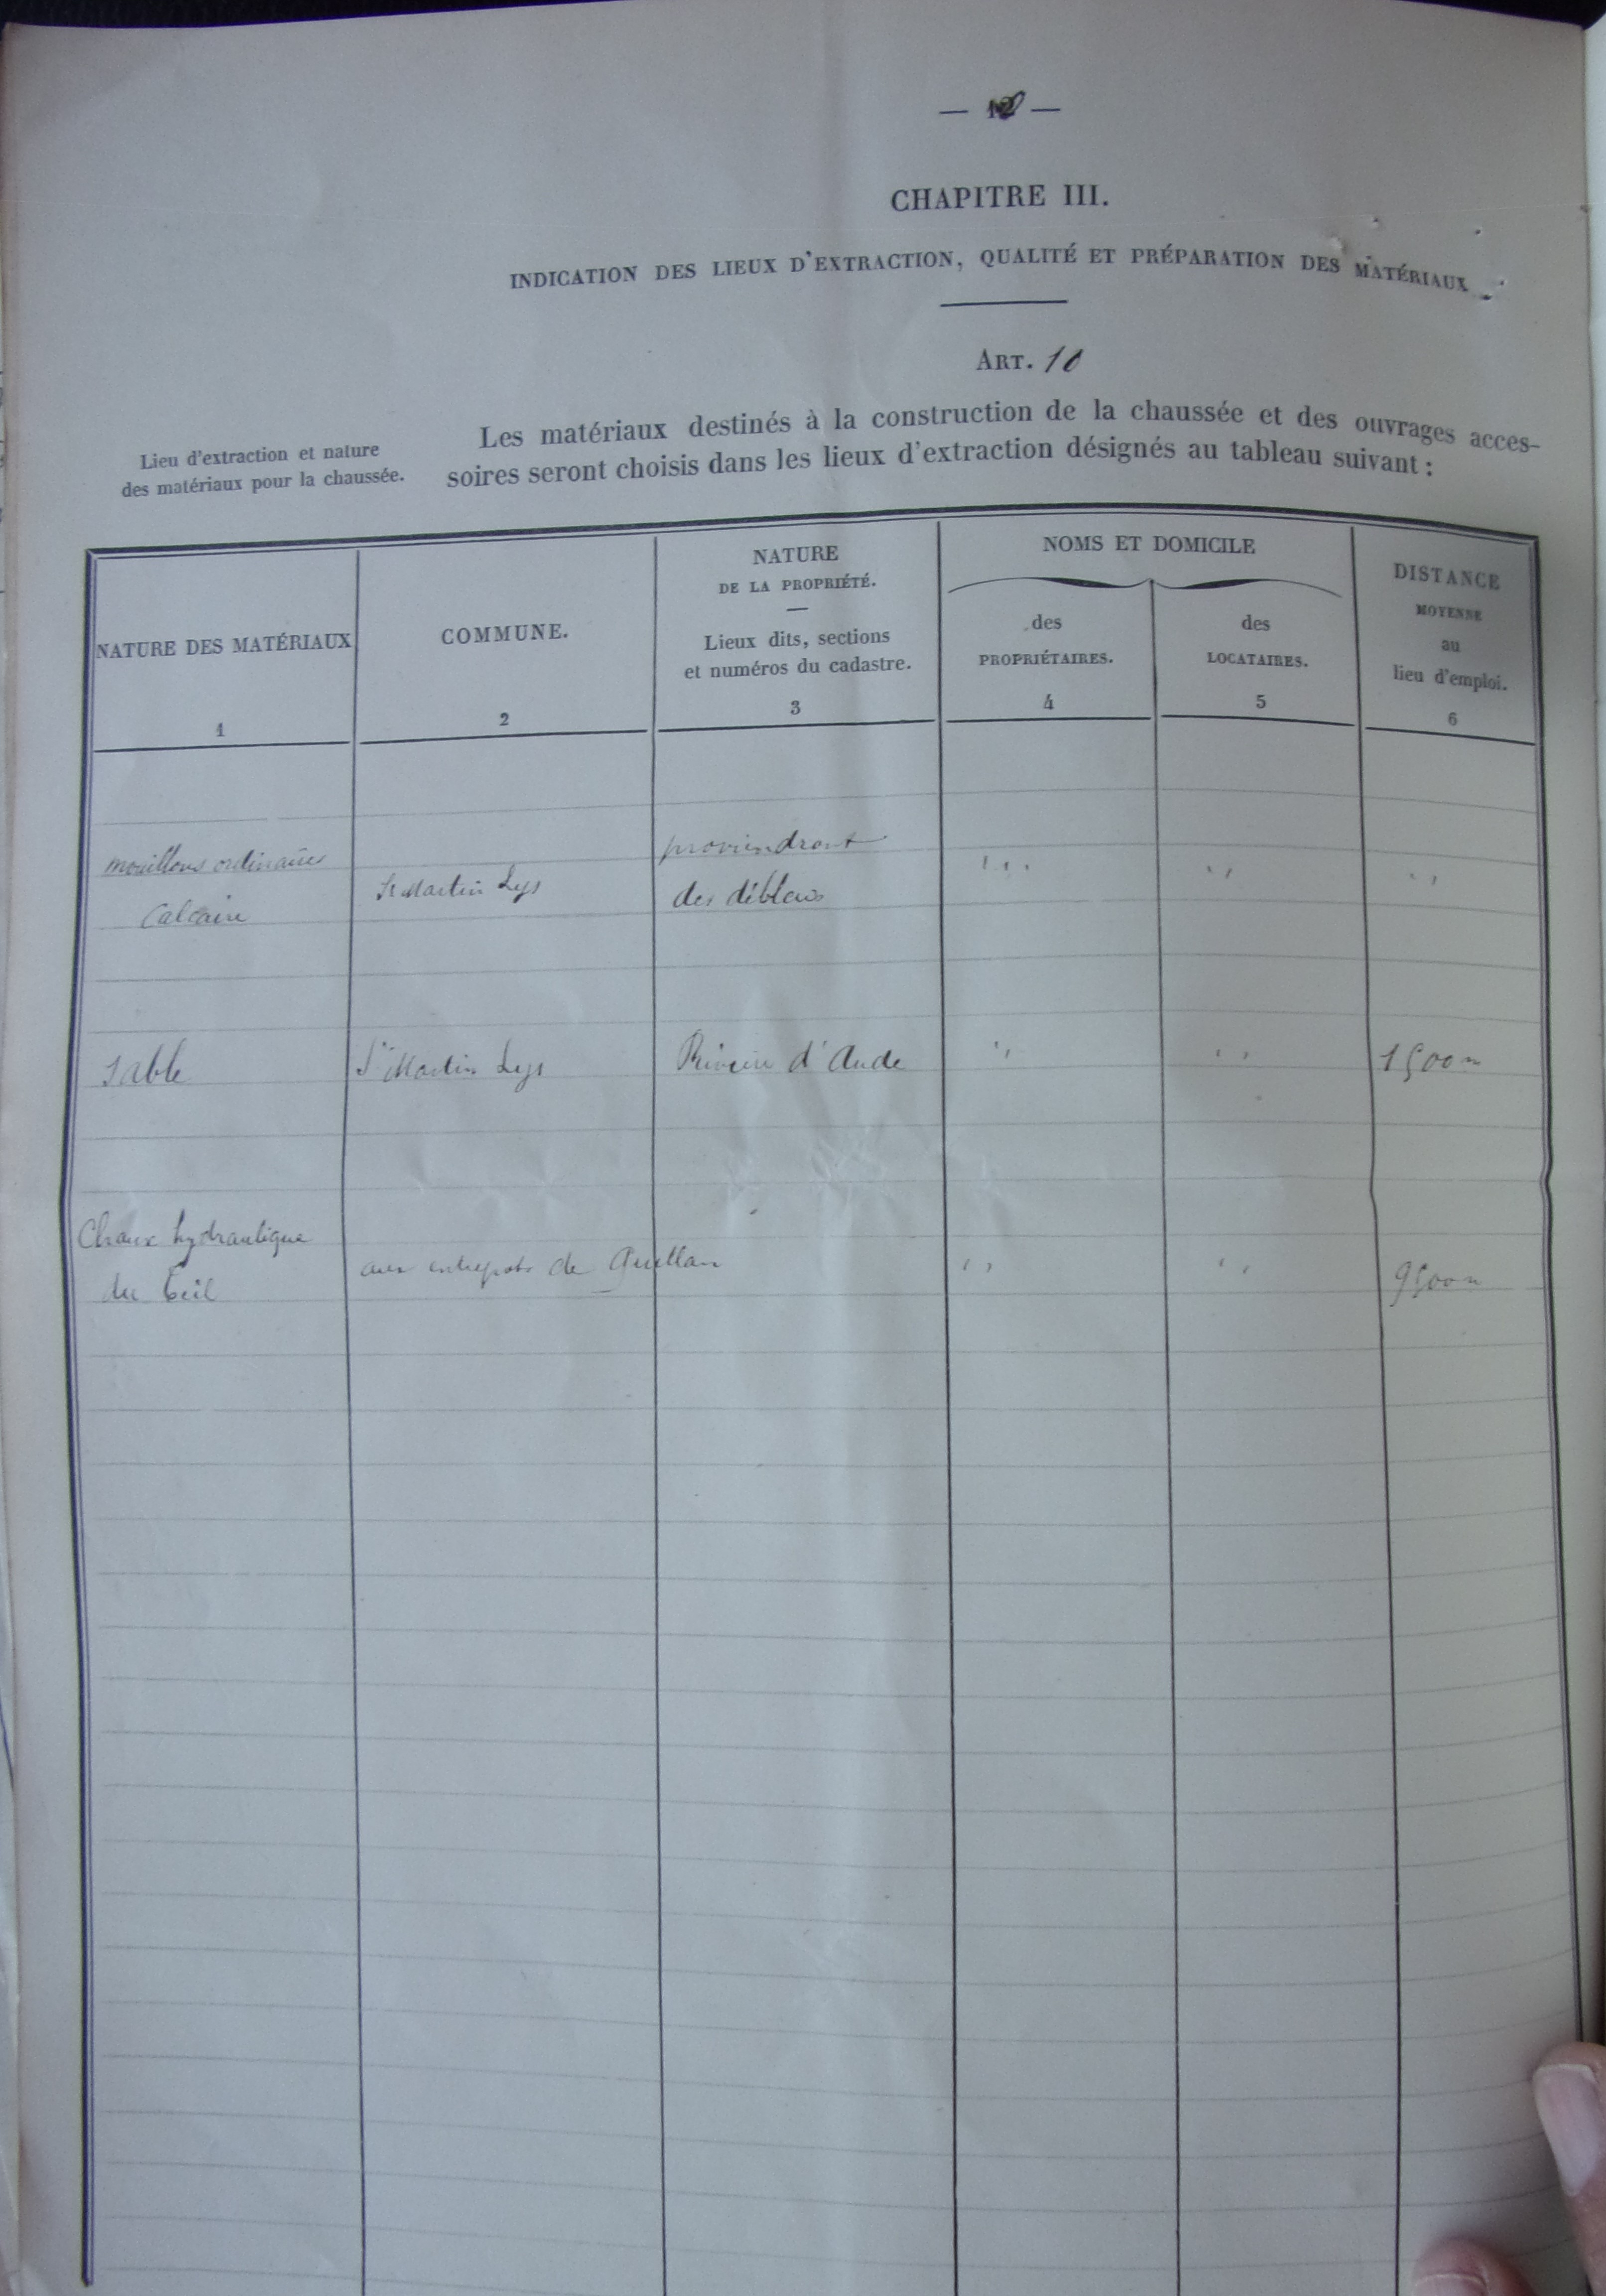 CHAPITRE III.
INDICATION DES LIEUX D'EXTRACTION, QUALITÉ ET PRÉPARATION DES MATÉRIAUX
ART. 10
Lieu d'extraction et nature
des matériaux pour la chaussée.
Les matériaux destinés à la construction de la chaussée et des ouvrages acces-
soires seront choisis dans les lieux d'extraction désignés au tableau suivant :
NATURE DES MATÉRIAUX
1
COMMUNE.
2
NATURE
DE LA PROPRIÉTÉ.
—
Lieux dits, sections
et numéros du cadastre.
3
NOMS ET DOMICILE
des
PROPRIÉTAIRES.
4
des
LOCATAIRES.
5
DISTANCE
MOYENNE
au
lieu d'emploi.
6
mouillons ordinaires
Calcaire
St Martin Lys
proviendront
des déblais
" "
" "
" "
Sable
St Martin Lys
Rivière d'Aude
" "
" "
1500 m
Chaux hydraulique
du Teil
aux entrepots de Quillan
" "
" "
9500 m